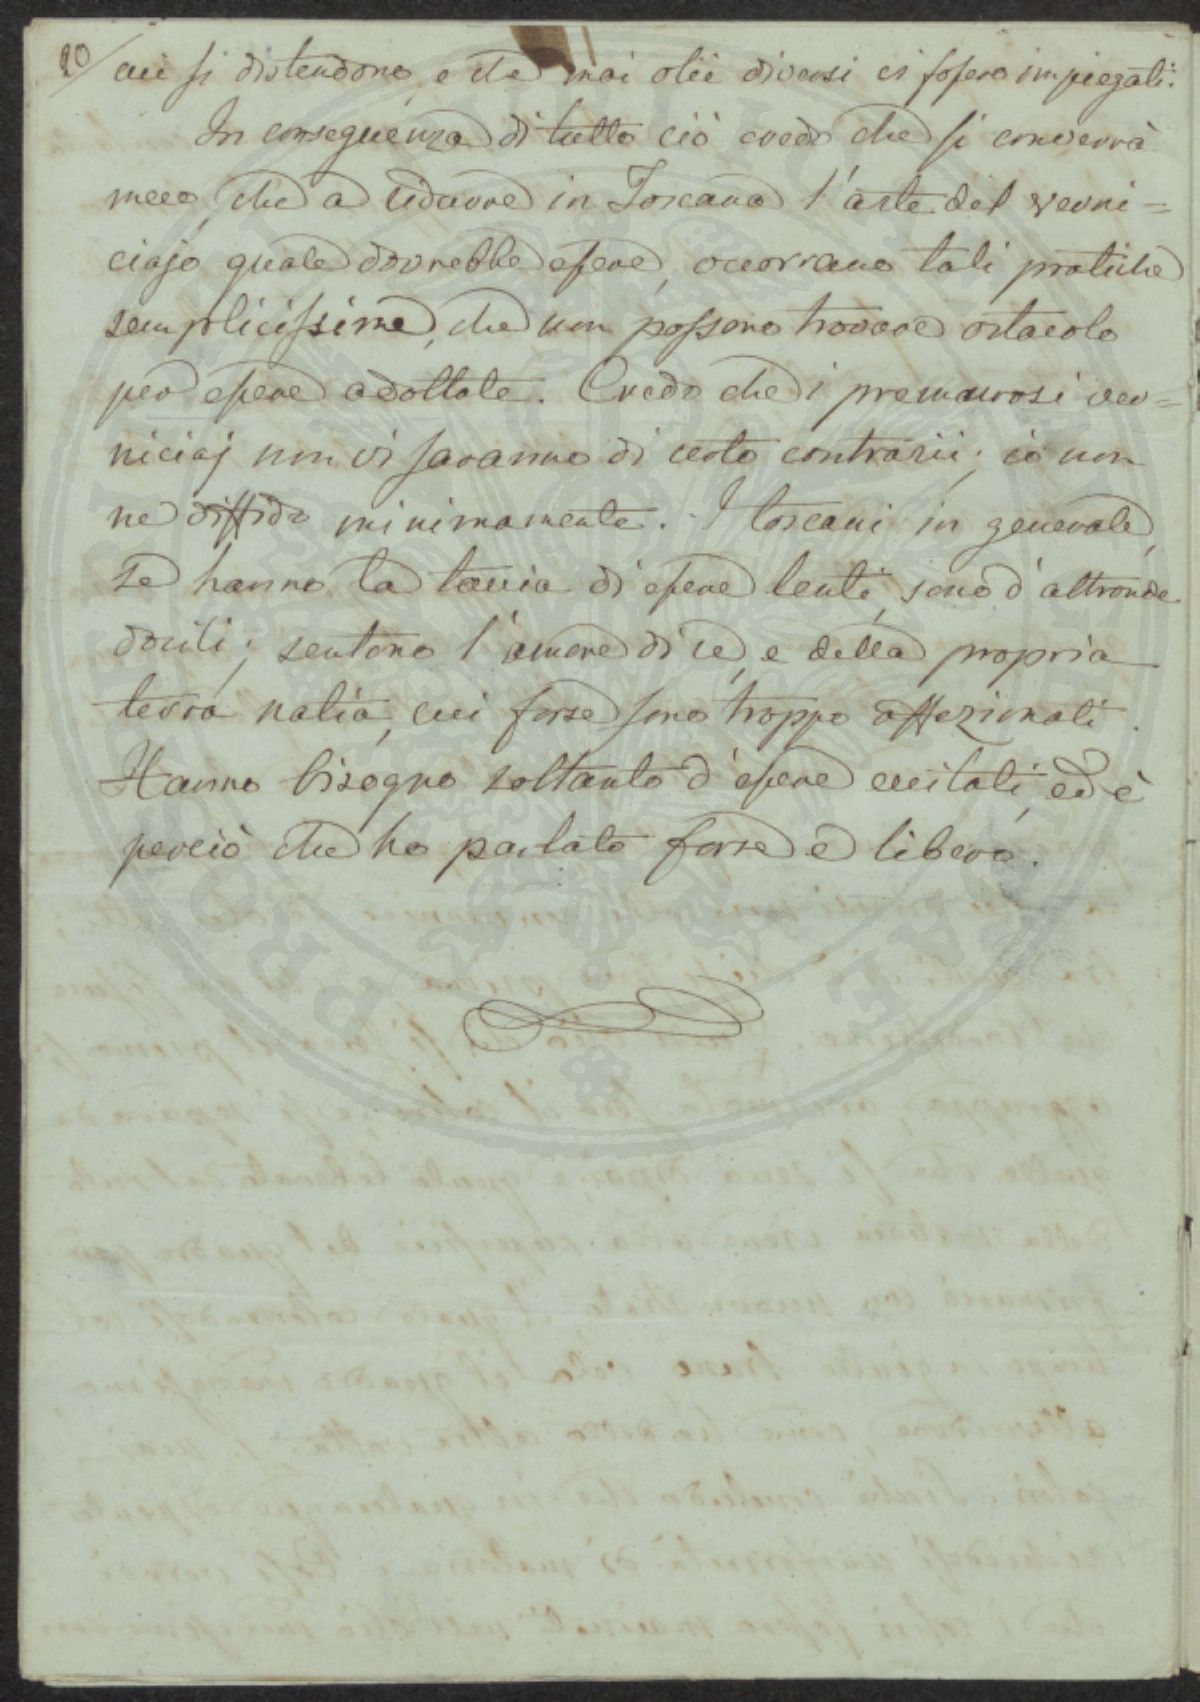 20/ cui si distendono, e che mai olii diversi vi fossero impiegati.
In conseguenza di tutto ciò credo che si converrà
meco, che a ridurre in Toscana l'arte del verni=
ciajo quale dovrebbe essere, occorrano tali pratiche
semplicissime, che non possono trovare ostacolo
per essere adottate. Credo che i premurosi ver=
niciaj non vi saranno di certo contrarii; io non
ne diffido minimamente. I toscani in generale,
se hanno la taccia di essere lenti, sono d'altronde
docili; sentono l'amore di se, e della propria
terra natia, cui forse sono troppo affezionati.
Hanno bisogno soltanto d'essere eccitati, ed è
perciò che ho parlato forse e libero.
PROPRI